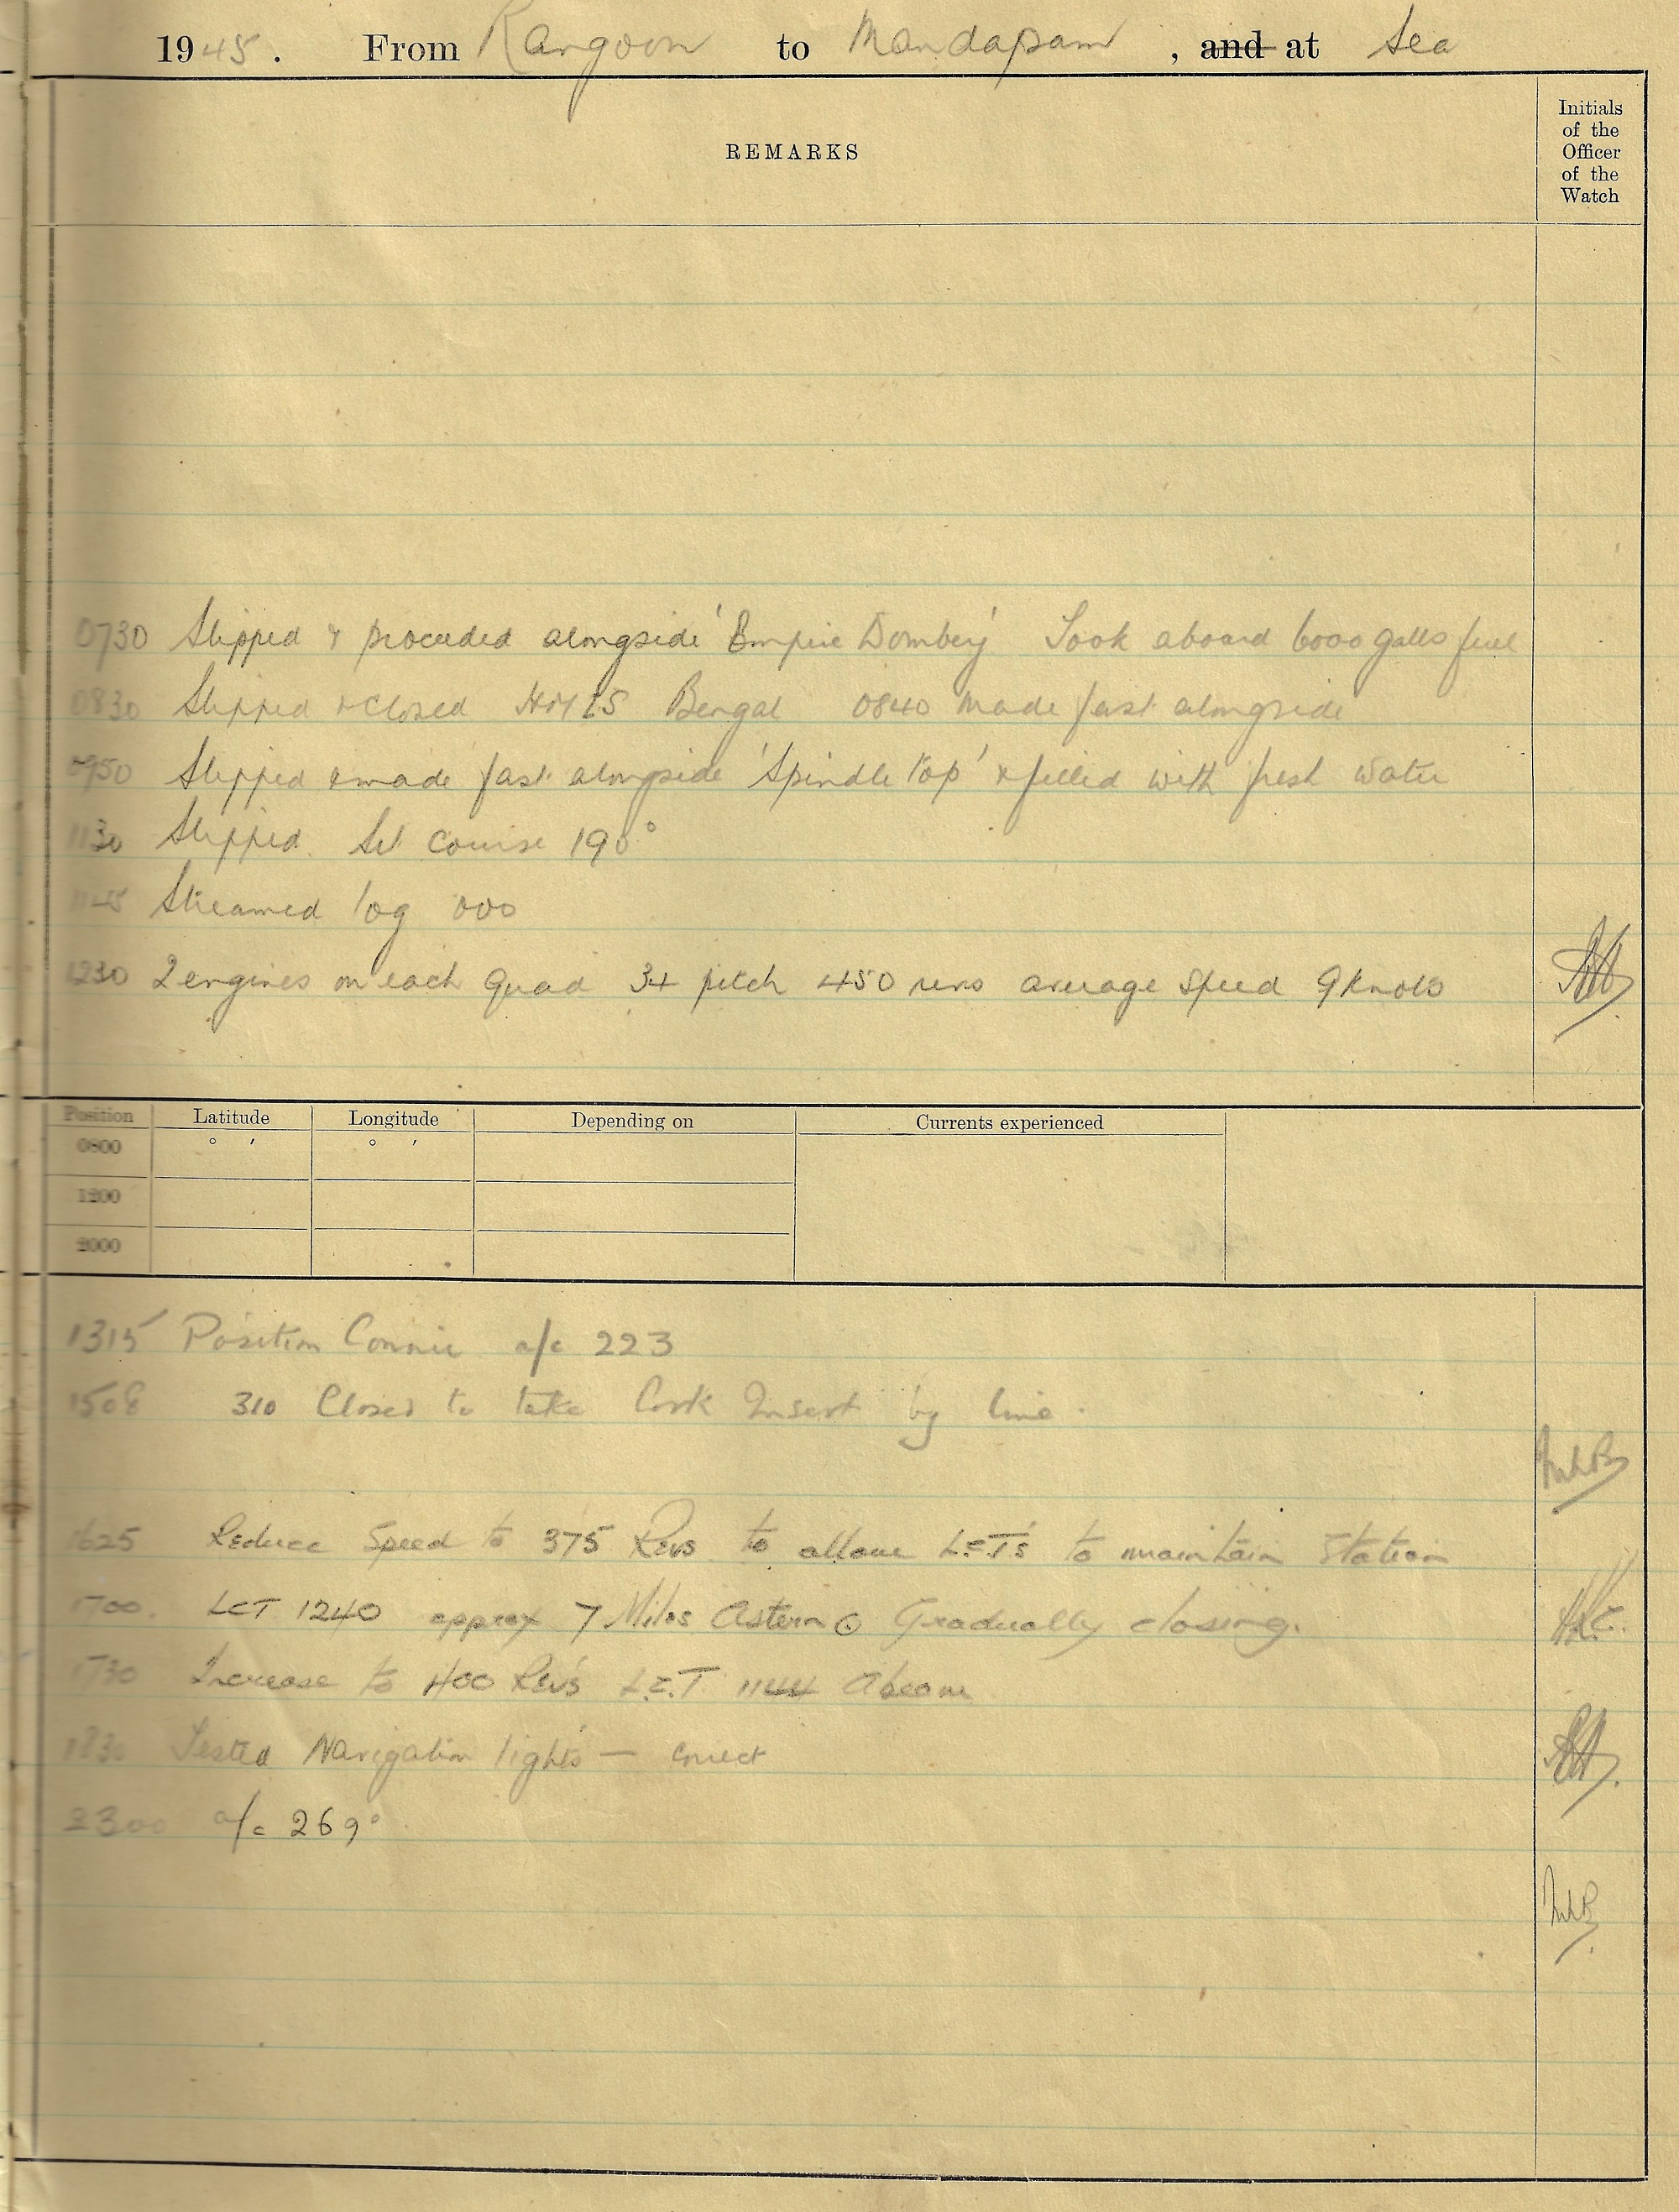 1945. From Rangoon to Mandapam, and at Sea
REMARKS
Initials
of the
Officer
of the
Watch
0730 Slipped & proceeded alongside 'Empire Dombey' Took aboard 6000 galls fuel
0830 Slipped & closed HMIS Bengal 0840 made fast alongside
0950 Slipped & made fast alongside 'Spindle top' & filled with fresh water
1130 Slipped. Set course 190°
Streamed log 000
1230 2 engines on each Quad 34 pitch 450 revs average speed 9 knots
Position Latitude Longitude Depending on Currents experienced
0800 ° ′ ° ′
1200
2000
1315 Position Connie a/c 223
1508 310 Closed to take Cork Insert by line.
1625 Reduce Speed to 375 Revs to allow L.C.T's to maintain Station
1700. LCT 1240 approx 7 Miles Astern Gradually closing.
1730 Increase to 400 Revs L.C.T 1144 Abeam
1830 Tested Navigation lights — correct
2300 a/c 269°